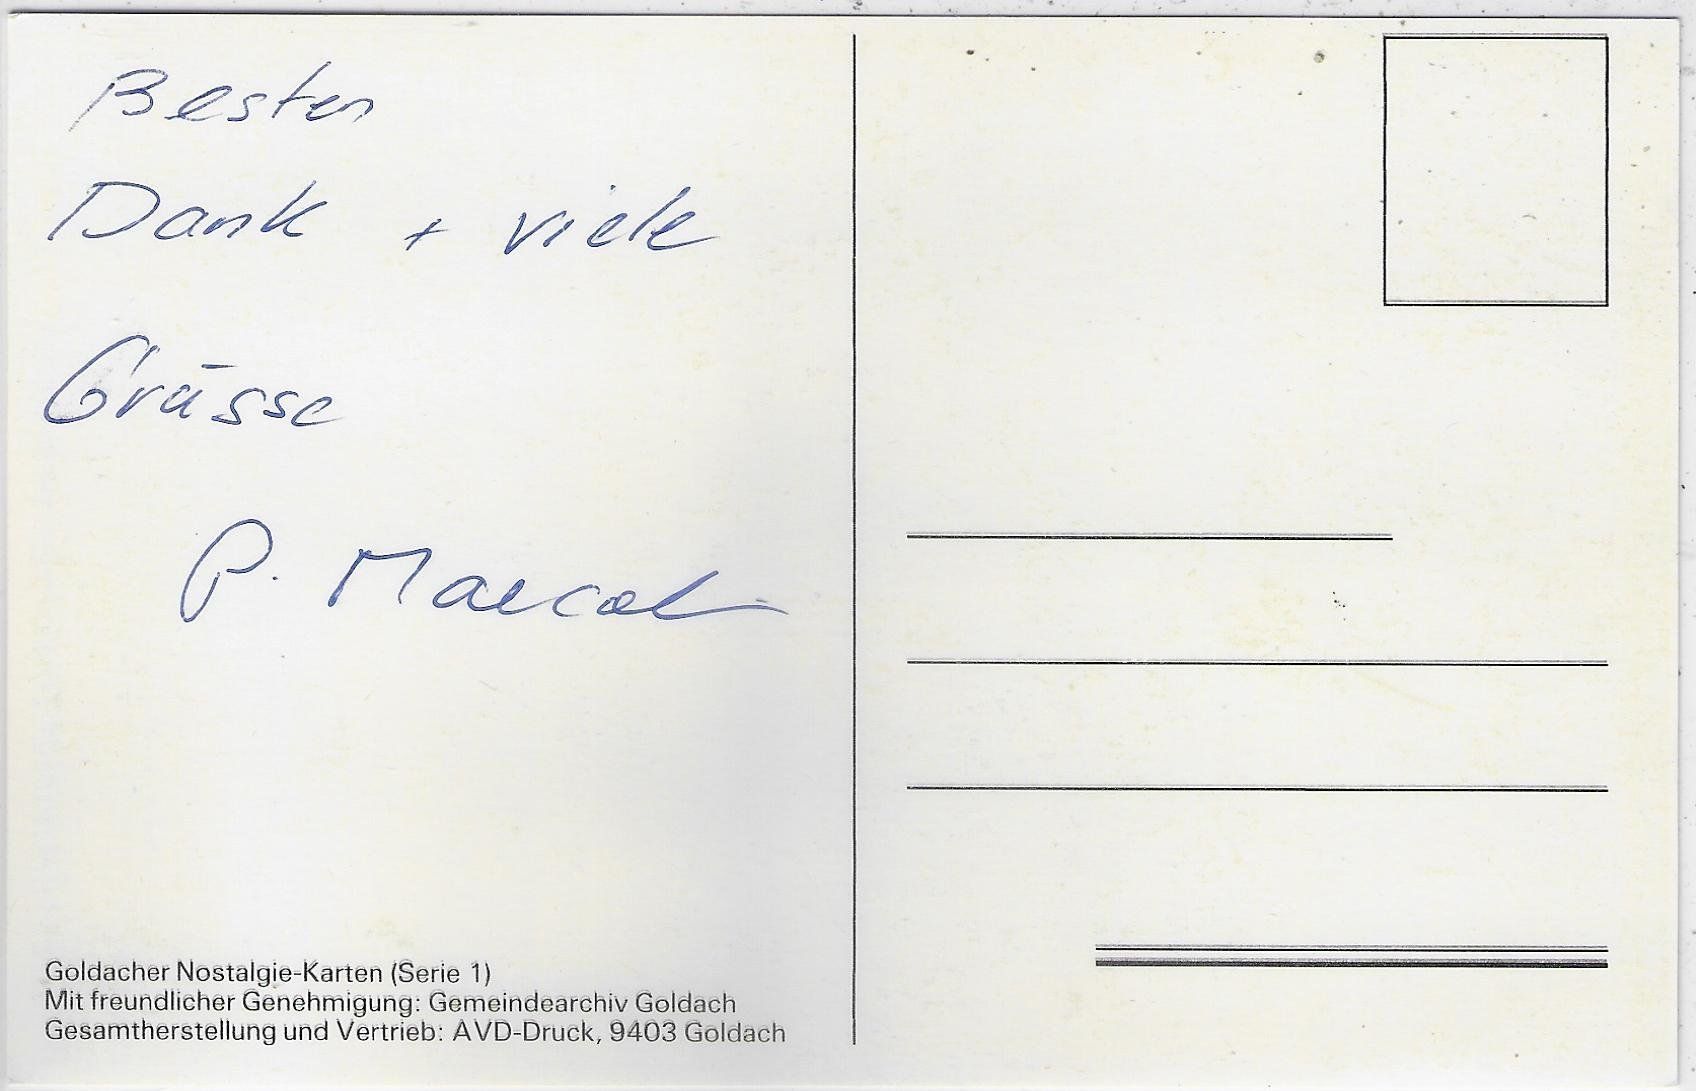 Besten
Dank + viele
Grüsse
P. Marcel
Goldacher Nostalgie-Karten (Serie 1)
Mit freundlicher Genehmigung: Gemeindearchiv Goldach
Gesamtherstellung und Vertrieb: AVD-Druck, 9403 Goldach